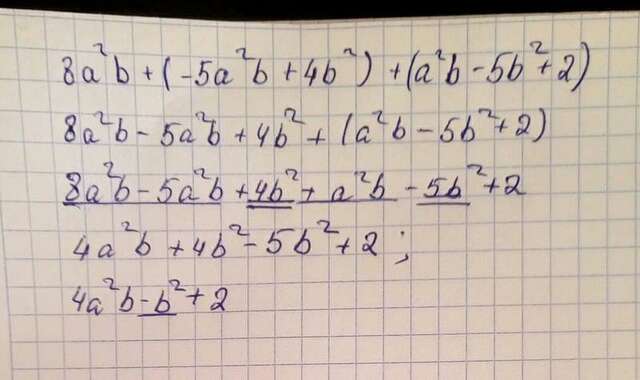 8a²b + (-5a²b + 4b²) + (a²b - 5b² + 2)
8a²b - 5a²b + 4b² + (a²b - 5b² + 2)
8a²b - 5a²b + 4b² + a²b - 5b² + 2
4a²b + 4b² - 5b² + 2 ;
4a²b - b² + 2